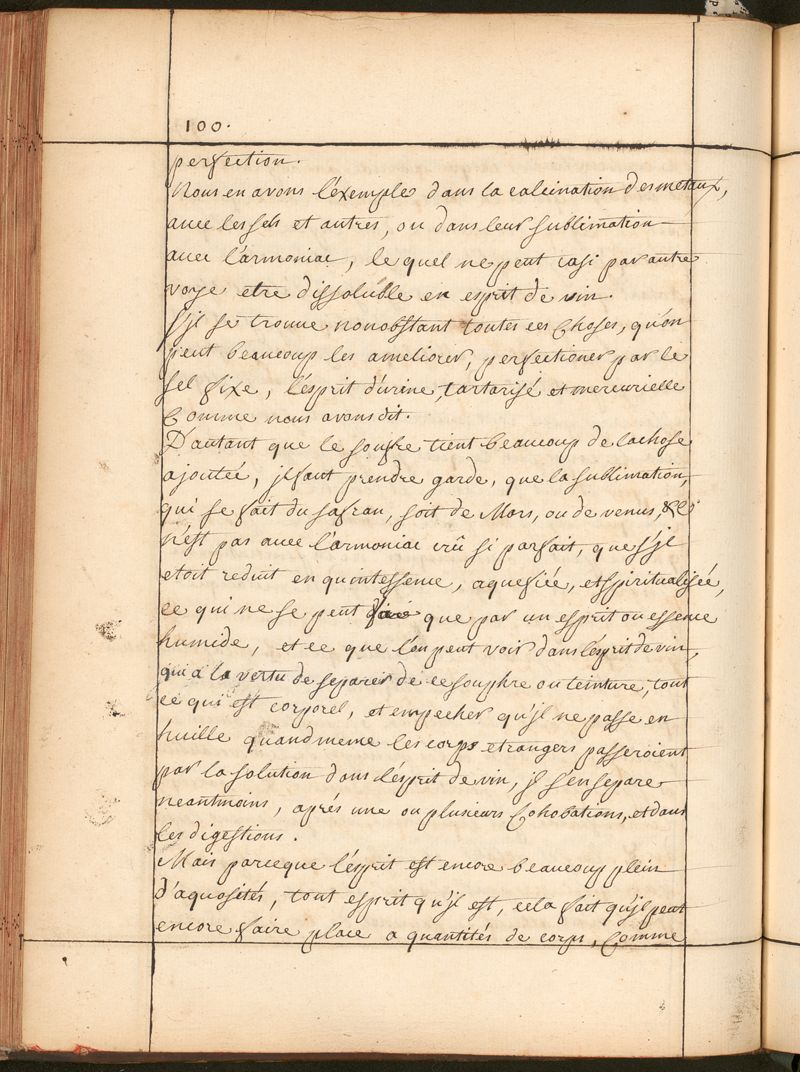 100.
perfection.
Nous en avons l'éxemple dans la calcination des metaux,
avec les sels et autres, ou dans leur sublimation
avec l'armoniac, le quel ne peut casi par autre
voye etre dissoluble en esprit de vin.
S'jl se trouve nonobstant toutes ces choses, qu'on
peut beaucoup les ameliorer, perfectioner par le
sel fixe, l'ésprit d'urine, tartarisé et mercurielle
Comme nous avons dit.
D'autant que le soufre tient beaucoup de la chose
ajoutée, jl faut prendre garde, que la sublimation,
qui se fait du safran, soit de Mars, ou de venus, &c
n'est pas avec l'armoniac crû si parfait, que s'jl
etoit reduit en quintessence, aquefiée, et spiritualisée,
ce qui ne se peut que par un esprit ou essence
humide, et ce que l'on peut voir dans l'ésprit de vin,
qui a la vertu de separer de ce souphre ou teinture, tout
ce qui est corporel, et empecher qu'jl ne passe en
huille quand meme les corps etrangers passeroient
par la solution dans l'ésprit de vin, jl s'en separe
neantmoins, aprés une ou plusieurs Cohobations, et dans
les digestions.
Mais parceque l'ésprit est encore beaucoup plein
d'aquosités, tout esprit qu'jl est, cela fait qu'jl peut
encore faire place a quantités de corps, Comme